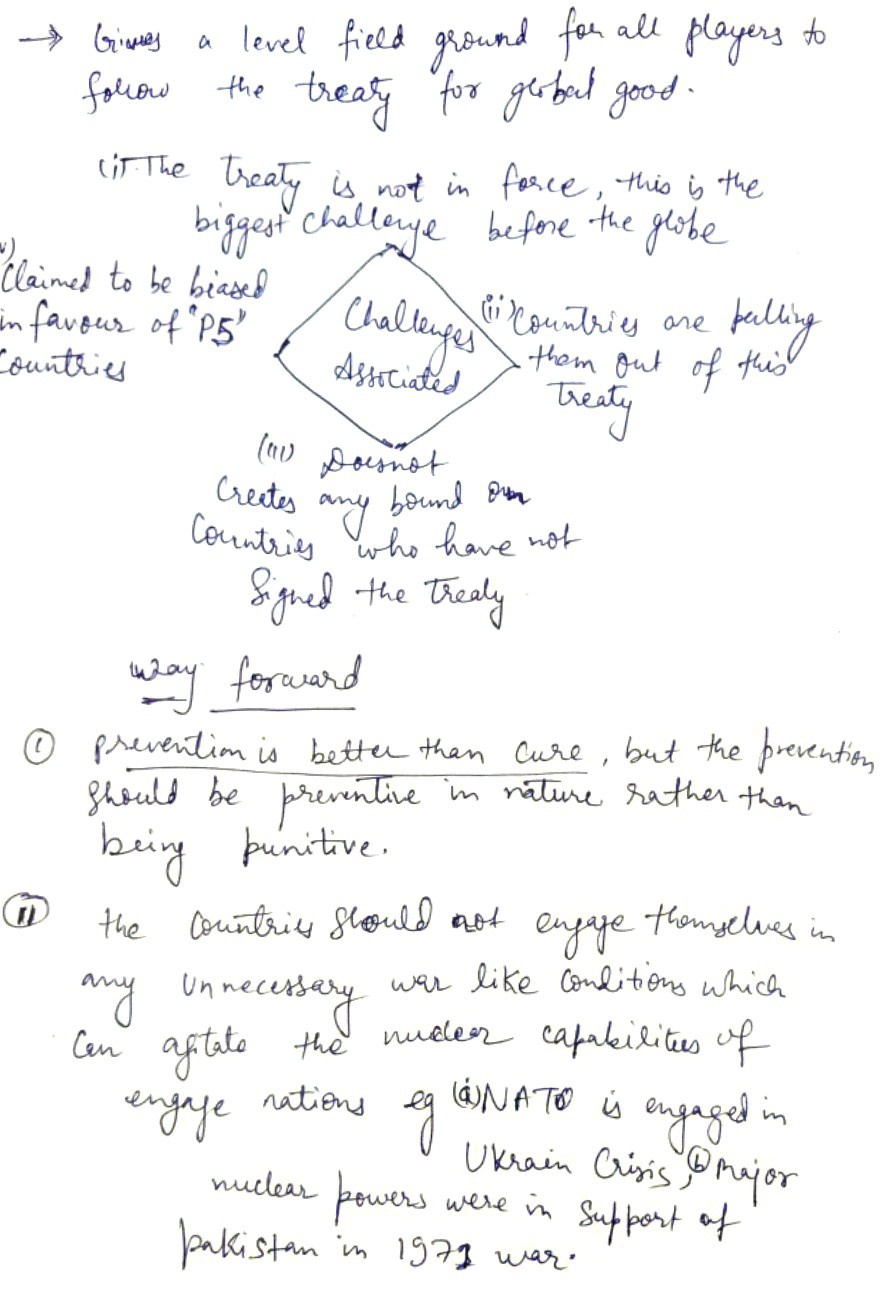 → Gives a level field ground for all players to
follow the treaty for global good.
(i) The treaty is not in force, this is the
biggest challenge before the globe
v)
Claimed to be biased
in favour of "P5"
Countries
Challenges
Associated
(ii) Countries are pulling
them out of this
Treaty
(iii) Doesnot
Creates any bound on
Countries who have not
Signed the Treaty
Way forward
(i) prevention is better than cure, but the prevention
should be preventive in nature rather than
being punitive.
(ii) the Countries should not engage themselves in
any unnecessary war like conditions which
Can agitate the nuclear capabilities of
engage nations eg (a) NATO is engaged in
Ukrain Crisis, (b) Major
nuclear powers were in support of
pakistan in 1971 war.